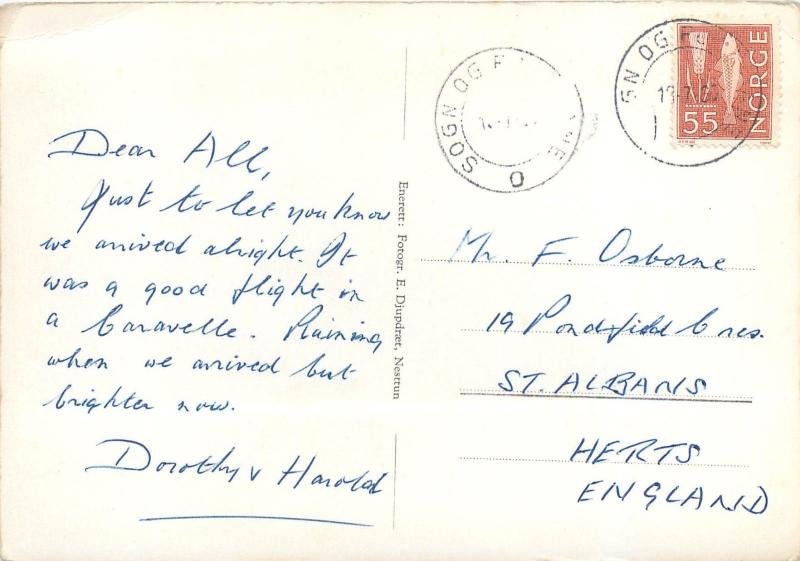 Dear All,
Just to let you know
we arrived alright. It
was a good flight in
a Caravelle. Raining
when we arrived but
brighter now.
Dorothy & Harold
Enerett: Fotogr. E. Djupdræt, Nesttun
SOGN OG F
O
GN OG
55
NORGE
Mr. F. Osborne
19 Pondfield Cres.
ST. ALBANS
HERTS
ENGLAND